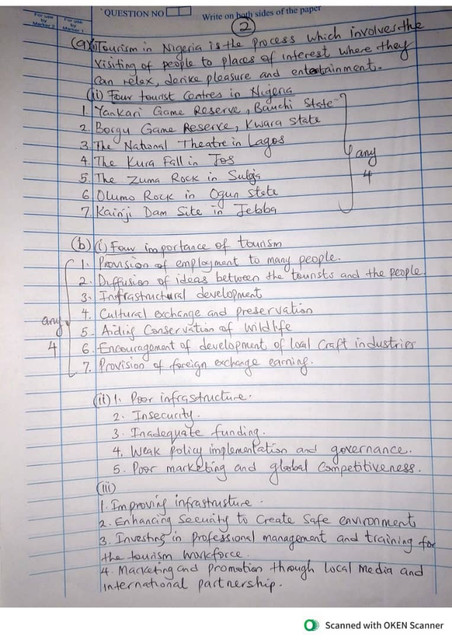 For use by Marker 2
For use by Marker 1
QUESTION NO
Write on both sides of the paper
2
(a)(i) Tourism in Nigeria is the process which involves the
visiting of people to places of interest where they
can relax, derive pleasure and entertainment.
(ii) Four tourist Centres in Nigeria
1. Yankari Game Reserve, Bauchi State
2. Borgu Game Reserve, Kwara State
3. The National Theatre in Lagos
4. The Kura Fall in Jos
any
4
5. The Zuma Rock in Suleja
6. Olumo Rock in Ogun State
7. Kainji Dam Site in Jebba
(b)(i) Four importance of tourism
1. Provision of employment to many people.
2. Diffusion of ideas between the tourists and the people
3. Infrastructural development
4. Cultural exchange and preservation
any
4
5. Aiding Conservation of Wildlife
6. Encouragement of development of local Craft industries
7. Provision of foreign exchange earning.
(ii) 1. Poor infrastructure.
2. Insecurity.
3. Inadequate funding.
4. Weak policy implementation and governance.
5. Poor marketing and global Competitiveness.
(iii)
1. Improving infrastructure.
2. Enhancing Security to Create Safe environment
3. Investing in professional management and training for
the tourism workforce.
4. Marketing and promotion through local media and
international partnership.
Scanned with OKEN Scanner